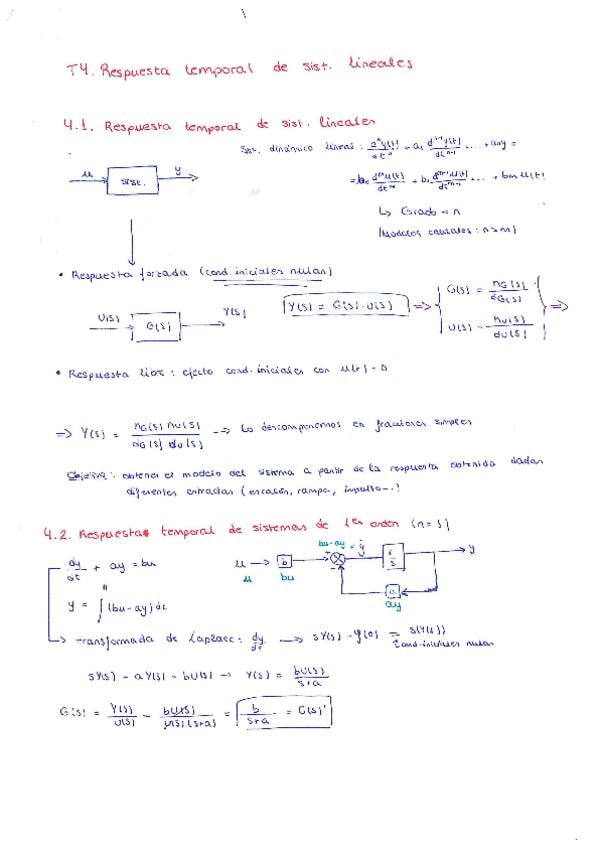 T4. Respuesta temporal de sist. lineales
4.1. Respuesta temporal de sist. lineales
Sist. dinámico lineal: d^n y(t)/dt^n + a₁ d^(n-1) y(t)/dt^(n-1) .... + any =
= b₀ d^m u(t)/dt^m + b₁ d^(m-1) u(t)/dt^(m-1) ... + bm u(t)
u → sist. → y
↳ Grado = n
(Modelos causales: n>m)
• Respuesta forzada (cond. iniciales nulas)
U(s) → G(s) → Y(s) Y(s) = G(s)·U(s) => { G(s) = nG(s)/dG(s) U(s) = nU(s)/dU(s) } =>
• Respuesta libre: efecto cond. iniciales con u(t) = 0
=> Y(s) = nG(s) nU(s) / dG(s) dU(s) → Lo descomponemos en fracciones simples
Objetivo: obtener el modelo del sistema a partir de la respuesta obtenida dadas
diferentes entradas (escalón, rampa, impulso...)
4.2. Respuestas temporal de sistemas de 1er orden (n = 1)
dy/dt + ay = bu
u → b → bu-ay = ẏ → 1/s → y
u bu
a
ay
y = ∫(bu-ay)dt
↳ Transformada de Laplace: dy/dt → sY(s) - y(0) = s(Y(s))
cond. iniciales nulas
sY(s) - aY(s) = bU(s) → Y(s) = bU(s)/s+a
G(s) = Y(s)/U(s) = bU(s)/U(s)(s+a) = b/s+a = G(s)